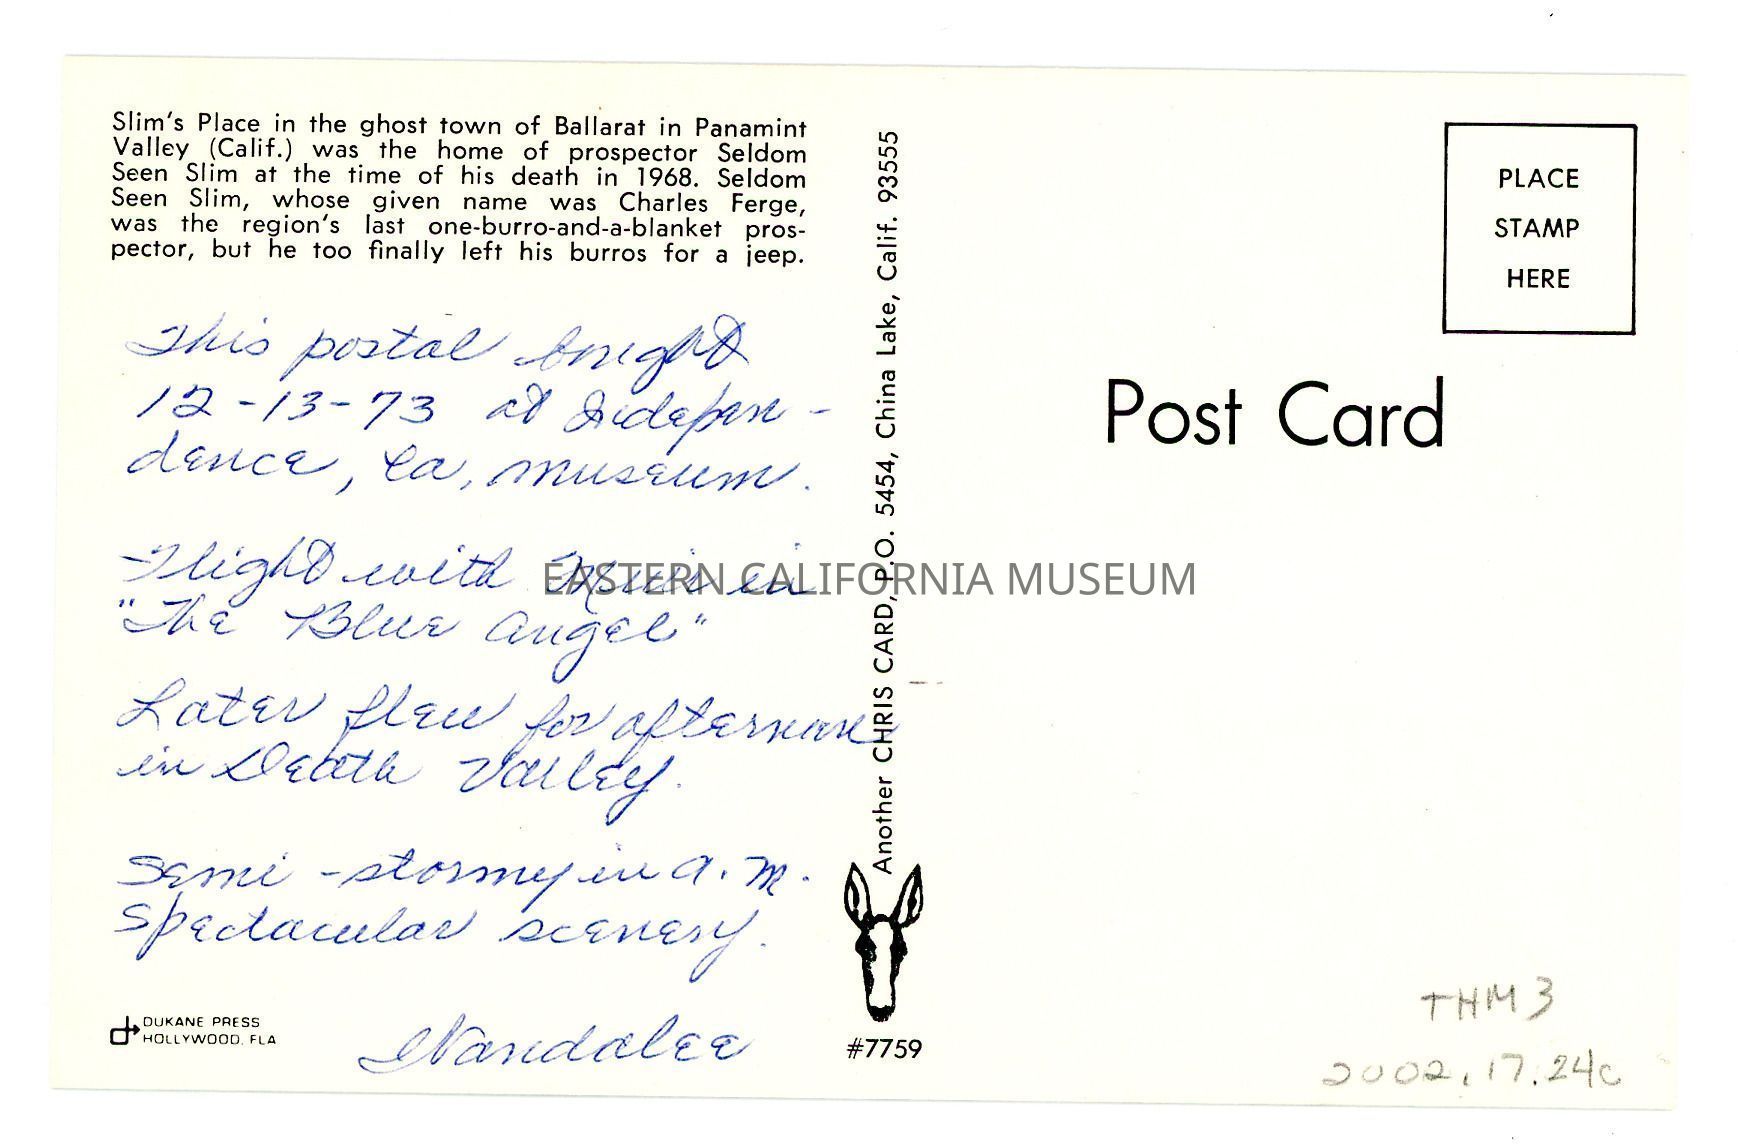 Slim's Place in the ghost town of Ballarat in Panamint
Valley (Calif.) was the home of prospector Seldom
Seen Slim at the time of his death in 1968. Seldom
Seen Slim, whose given name was Charles Ferge,
was the region's last one-burro-and-a-blanket pros-
pector, but he too finally left his burros for a jeep.
This postal bought
12-13-73 at Indepen-
dence, Ca, museum.
Flight with in
"The Blue Angel"
Later flew for afternoon
in Death Valley.
Semi-stormy in A.M.
Spectacular scenery.
Nandalee
DUKANE PRESS
HOLLYWOOD, FLA
Another CHRIS CARD, P.O. 5454, China Lake, Calif. 93555
#7759
PLACE
STAMP
HERE
Post Card
THM 3
2002.17.24c
EASTERN CALIFORNIA MUSEUM